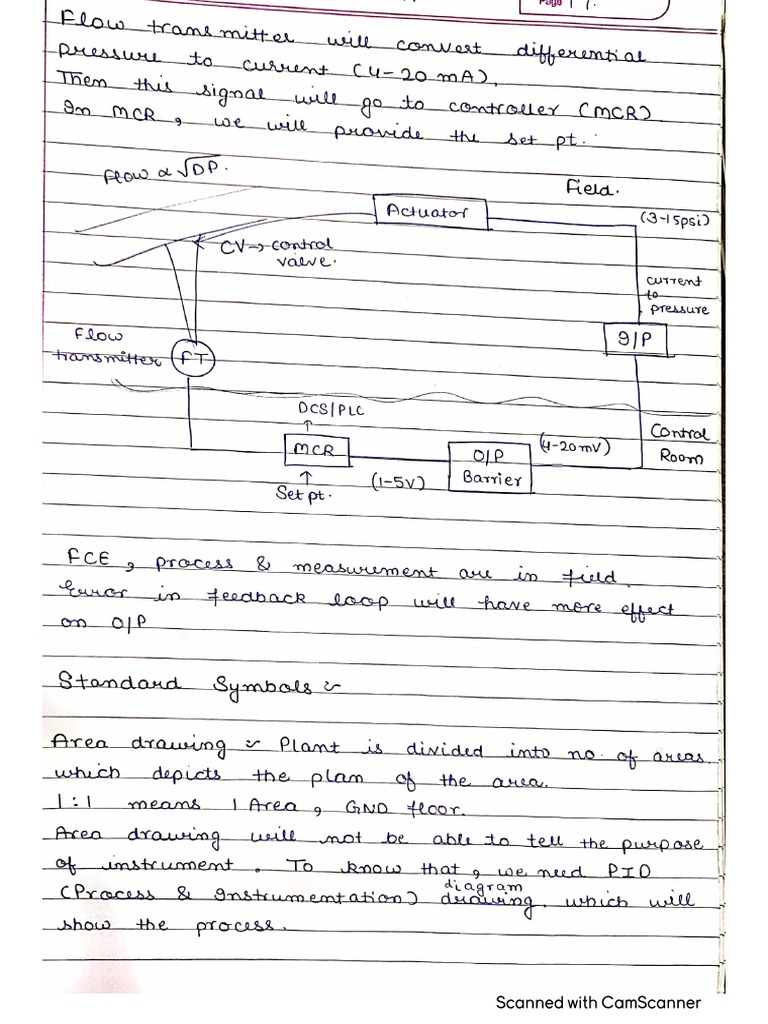 Page 1.
Flow transmitter will convert differential
pressure to current (4-20 mA).
Then this signal will go to controller (MCR)
In MCR, we will provide the set pt.
Flow ∝ √DP.
Field.
Actuator
(3-15psi)
CV → control
valve.
current
to
pressure
I/P
Flow
transmitter
FT
DCS/PLC
MCR
Set pt.
(1-5V)
O/P
Barrier
(4-20mV)
Control
Room
FCE, process & measurement are in field.
Error in feedback loop will have more effect
on O/P
Standard Symbols :-
Area drawing :- Plant is divided into no. of areas
which depicts the plan of the area.
1:1 means 1 Area, GND floor.
Area drawing will not be able to tell the purpose
of instrument. To know that, we need PID
(Process & Instrumentation) diagram drawing. which will
show the process.
Scanned with CamScanner